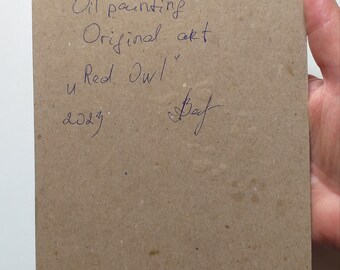 Oil painting
Original akt
„Red Owl"
2023